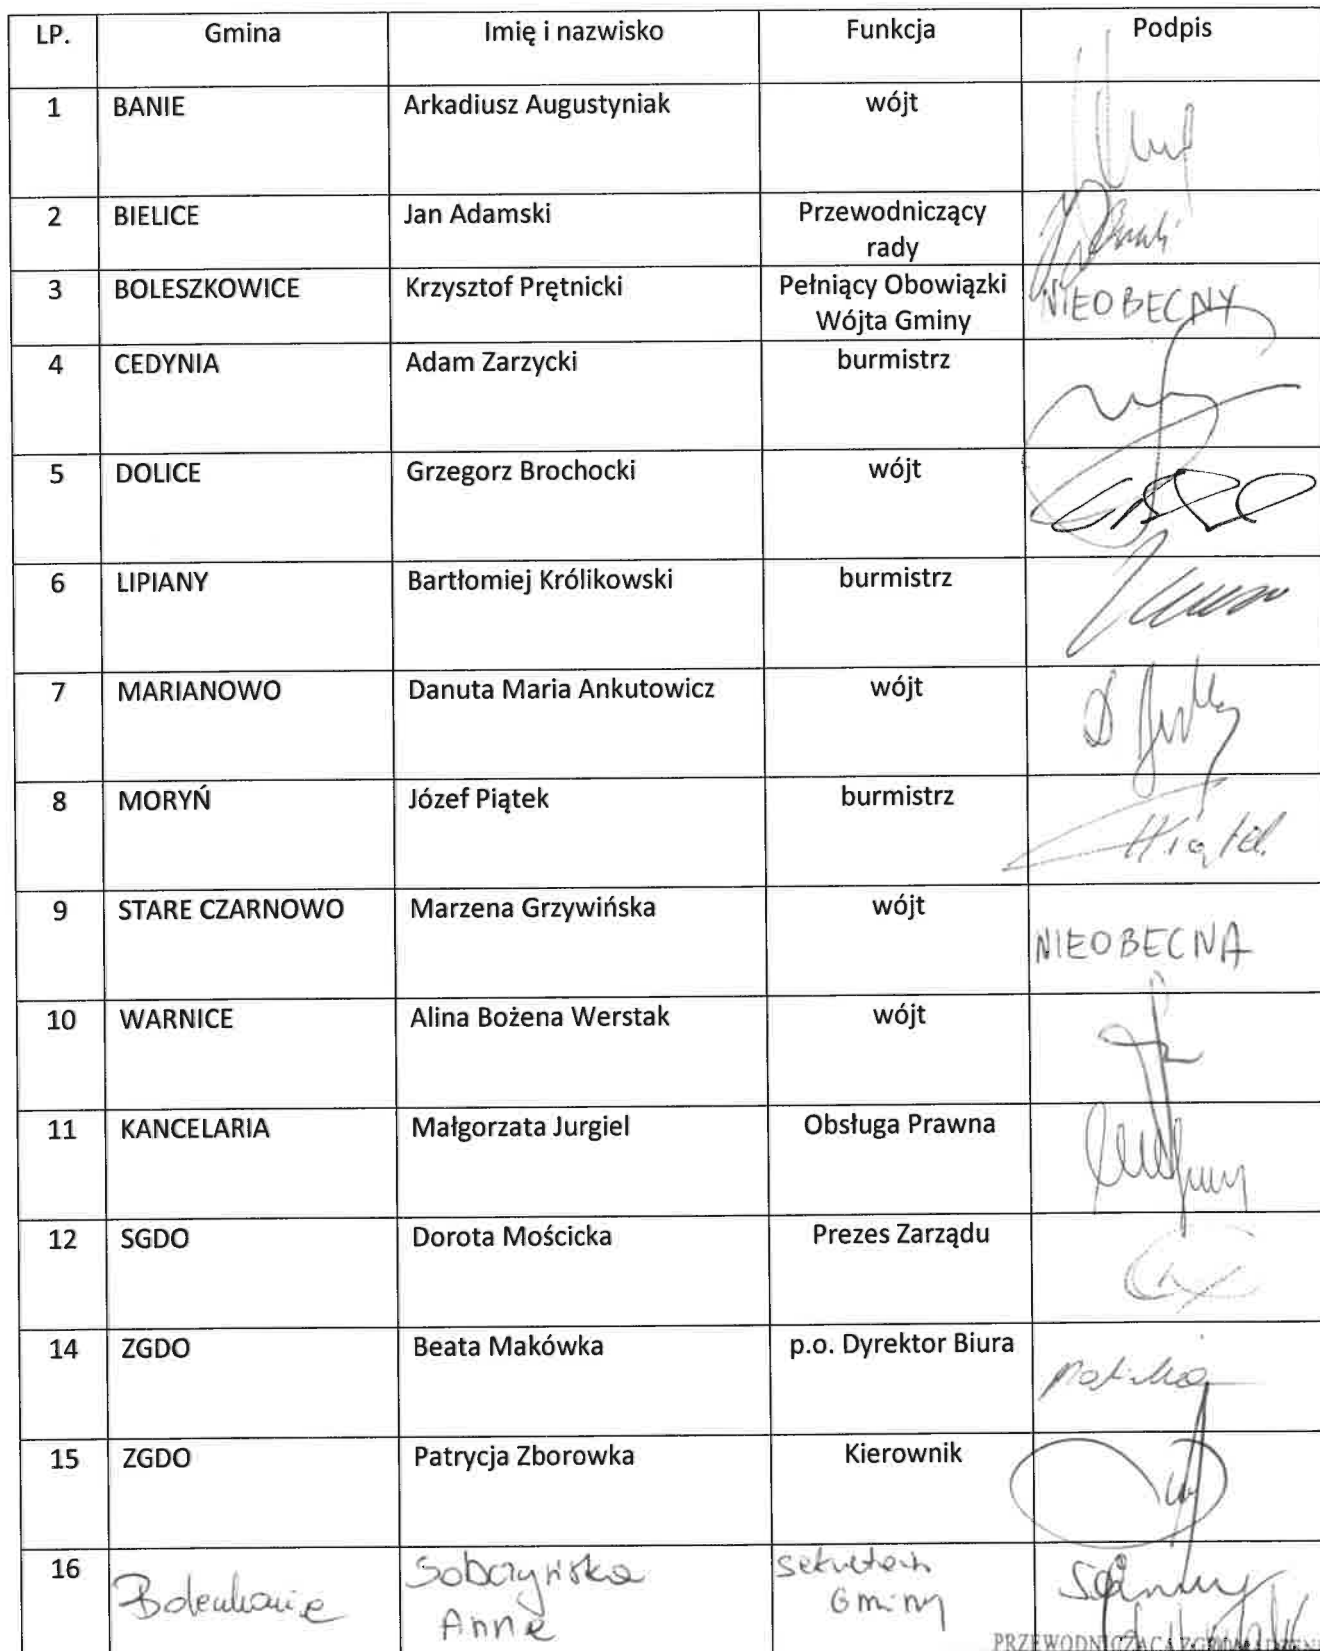 LP. Gmina Imię i nazwisko Funkcja Podpis
1 BANIE Arkadiusz Augustyniak wójt
2 BIELICE Jan Adamski Przewodniczący
rady
3 BOLESZKOWICE Krzysztof Prętnicki Pełniący Obowiązki NIEOBECNY
Wójta Gminy
4 CEDYNIA Adam Zarzycki burmistrz
5 DOLICE Grzegorz Brochocki wójt
6 LIPIANY Bartłomiej Królikowski burmistrz
7 MARIANOWO Danuta Maria Ankutowicz wójt
8 MORYŃ Józef Piątek burmistrz
9 STARE CZARNOWO Marzena Grzywińska wójt NIEOBECNA
10 WARNICE Alina Bożena Werstak wójt
11 KANCELARIA Małgorzata Jurgiel Obsługa Prawna
12 SGDO Dorota Mościcka Prezes Zarządu
14 ZGDO Beata Makówka p.o. Dyrektor Biura
15 ZGDO Patrycja Zborowka Kierownik
16 Sobczyńska sekretarz
Anna Gminy
PRZEWODNICZĄCA